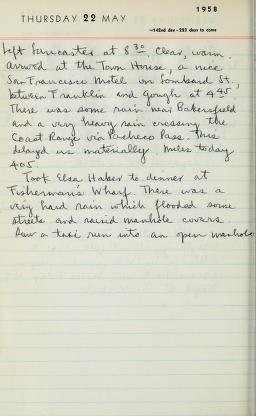 1958
THURSDAY 22 MAY
142nd day - 223 days to come
Left Lancaster at 8 30. Clear, warm.
Arrived at the Town House, a nice
San Francisco Motel on Lombard St.,
between Franklin and Gough at 4 45.
There was some rain near Bakersfield
and a very heavy rain crossing the
Coast Range via Pacheco Pass. This
delayed us materially. Miles today
405.
Took Elsa Haber to dinner at
Fisherman's Wharf. There was a
very hard rain which flooded some
streets and raised manhole covers.
Saw a taxi run into an open manhole.